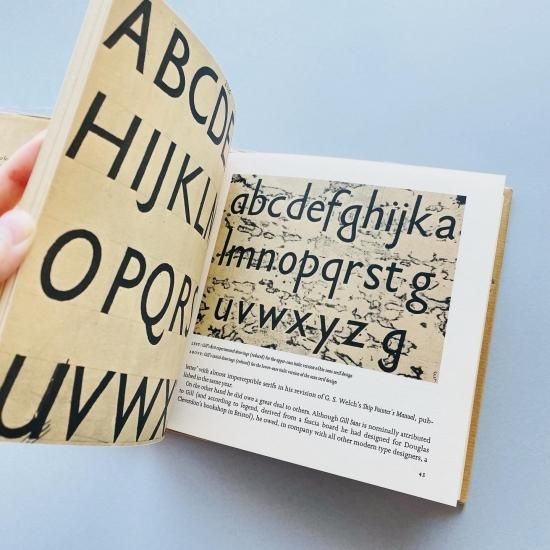 ABCDE
HIJKL
OPQRS
UVWX
abcdefghijka
lmnopqrstg
uvwxyzg
LEFT: Gill's first experimental drawings (reduced) for the upper-case titling version of his sans serif design
ABOVE: Gill's initial drawings (reduced) for the lower-case version of this sans serif design
letter' with almost imperceptible serifs in his revision of G. S. Welch's Ship Painter's Manual, pub-
lished in the same year.
On the other hand he did owe a great deal to others. Although Gill Sans is nominally attributed
to Gill (and according to legend, derived from a fascia board he had designed for Douglas
Cleverdon's bookshop in Bristol), he owed, in company with all other modern type designers, a
45